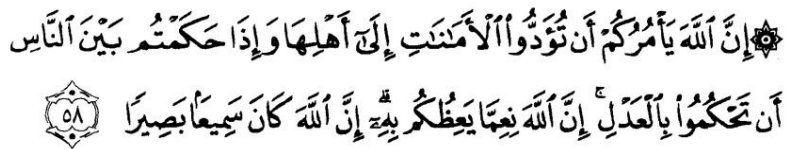 ۞ إِنَّ ٱللَّهَ يَأْمُرُكُمْ أَن تُؤَدُّوا۟ ٱلْأَمَـٰنَـٰتِ إِلَىٰٓ أَهْلِهَا وَإِذَا حَكَمْتُم بَيْنَ ٱلنَّاسِ
أَن تَحْكُمُوا۟ بِٱلْعَدْلِ ۚ إِنَّ ٱللَّهَ نِعِمَّا يَعِظُكُم بِهِۦٓ ۗ إِنَّ ٱللَّهَ كَانَ سَمِيعًۢا بَصِيرًا ٥٨